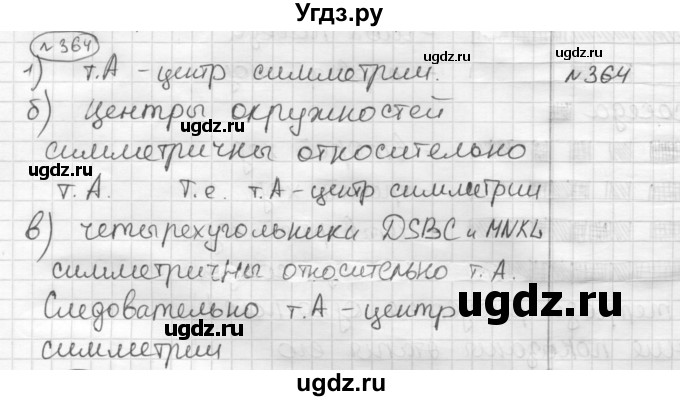 Угдз.ру
№364
1) т.А - центр симметрии. №364
б) Центры окружностей
симметричны относительно
т.А. Т.е. т.А-центр симметрии
в) четырехугольники DSBC и MNKL
симметричны относительно т.А.
Следовательно т.А-центр
симметрии
ugdz.ru
ugdz.ru
ugdz.ru
ugdz.ru
ugdz.ru
ugdz.ru
ugdz.ru
ugdz.ru